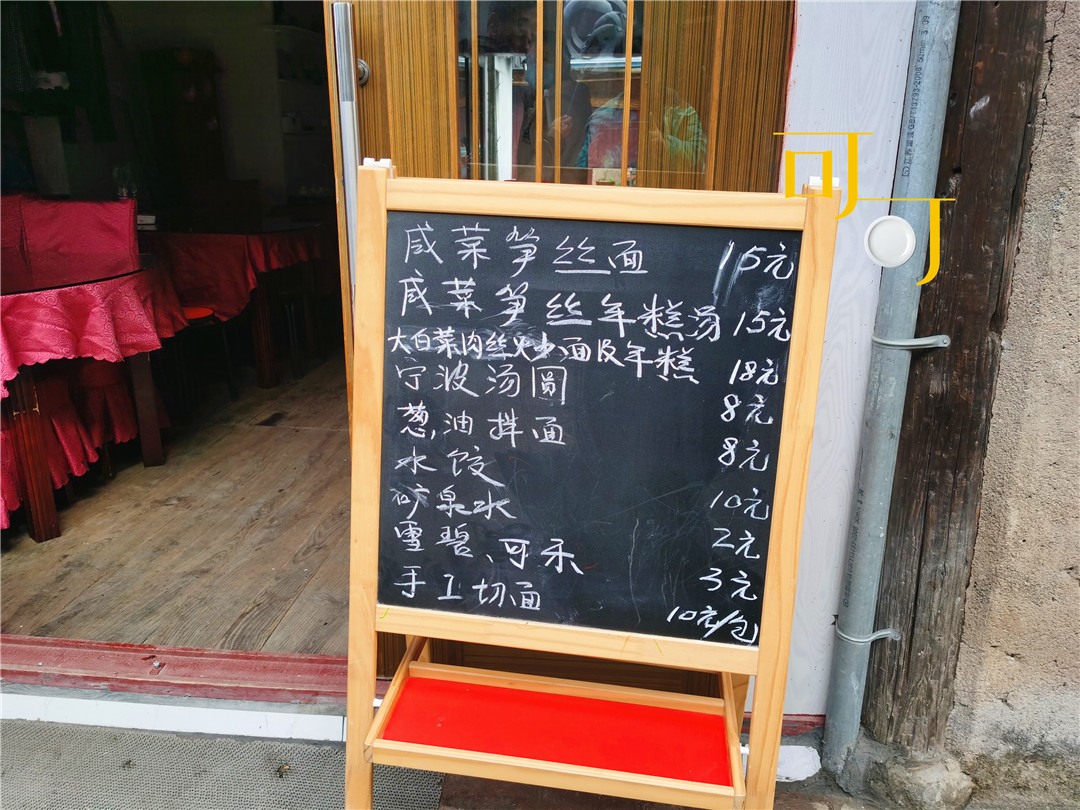 可可
咸菜笋丝面 15元
咸菜笋丝年糕汤 15元
大白菜肉丝炒面及年糕 18元
宁波汤圆 8元
葱油拌面 8元
水饺 10元
矿泉水 2元
雪碧、可乐 3元
手工切面 10元/包